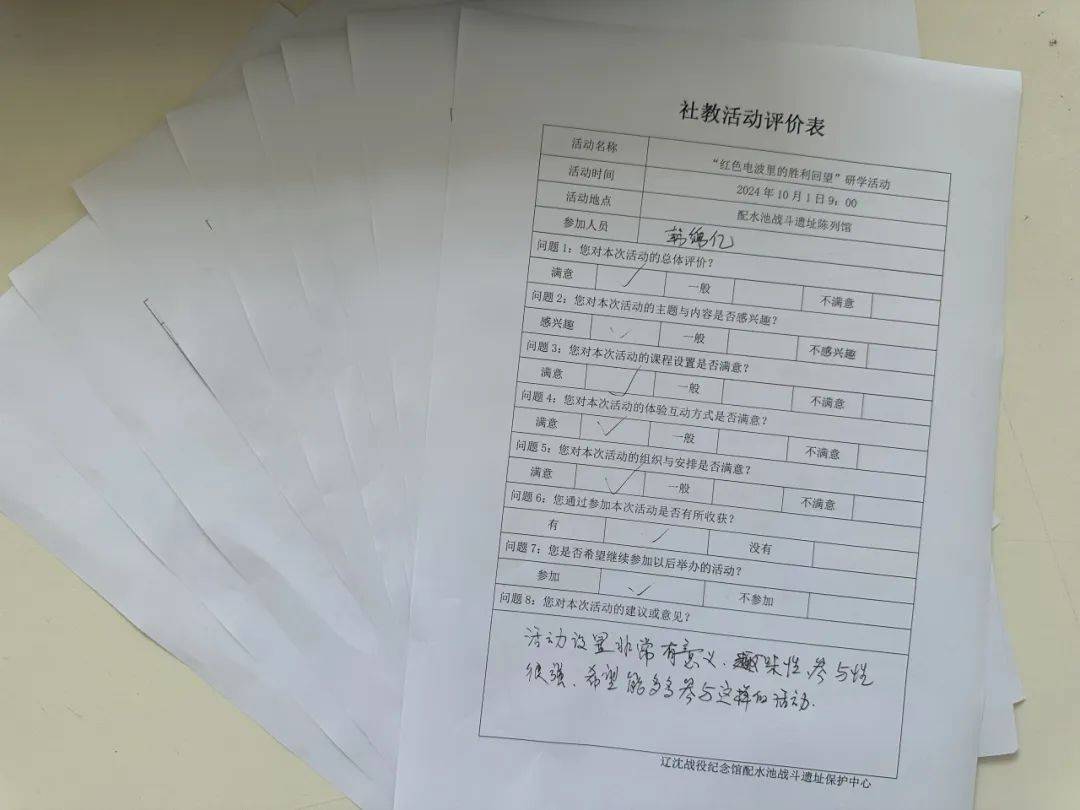 社教活动评价表
活动名称 “红色电波里的胜利回望”研学活动
活动时间 2024年10月1日9：00
活动地点 配水池战斗遗址陈列馆
参加人员 韩锦亿
问题1：您对本次活动的总体评价？
满意 ✓ 一般 不满意
问题2：您对本次活动的主题与内容是否感兴趣？
感兴趣 ✓ 一般 不感兴趣
问题3：您对本次活动的课程设置是否满意？
满意 ✓ 一般 不满意
问题4：您对本次活动的体验互动方式是否满意？
满意 ✓ 一般 不满意
问题5：您对本次活动的组织与安排是否满意？
满意 ✓ 一般 不满意
问题6：您通过参加本次活动是否有所收获？
有 ✓ 没有
问题7：您是否希望继续参加以后举办的活动？
参加 ✓ 不参加
问题8：您对本次活动的建议或意见？
活动设置非常有意义、趣味性、参与性
很强、希望能多多参与这样的活动.
辽沈战役纪念馆配水池战斗遗址保护中心